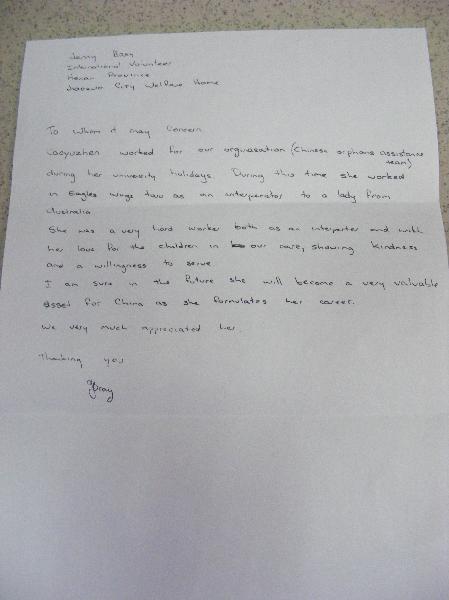 Jenny
International Volunteer
Henan Province
Jiaozuo City Welfare Home
To Whom it may Concern
Caoyuzhen worked for our orgnasation (Chinese orphans assistance
team)
during her university holidays. During this time she worked
in Eagles wings two as an interperator to a lady from
Australia
She was a very hard worker both as an interperter and with
her love for the children in our care, showing kindness
and a willingness to serve
I am sure in the future she will become a very valuable
asset for China as she formulates her career.
We very much appreciated her.
Thanking you